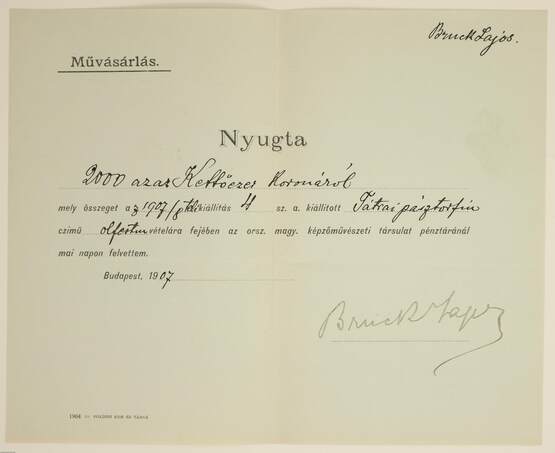 Bruck Lajos.
Művásárlás.
Nyugta
2000 azaz Kettőezer koronáról
mely összeget a z 1907/ kiállítás 4 sz. a. kiállított Tátrai pásztorfiu
czimű olfestm vételára fejében az orsz. magy. képzőművészeti társulat pénztáránál
mai napon felvettem.
Budapest, 1907
Bruck Lajos
1904